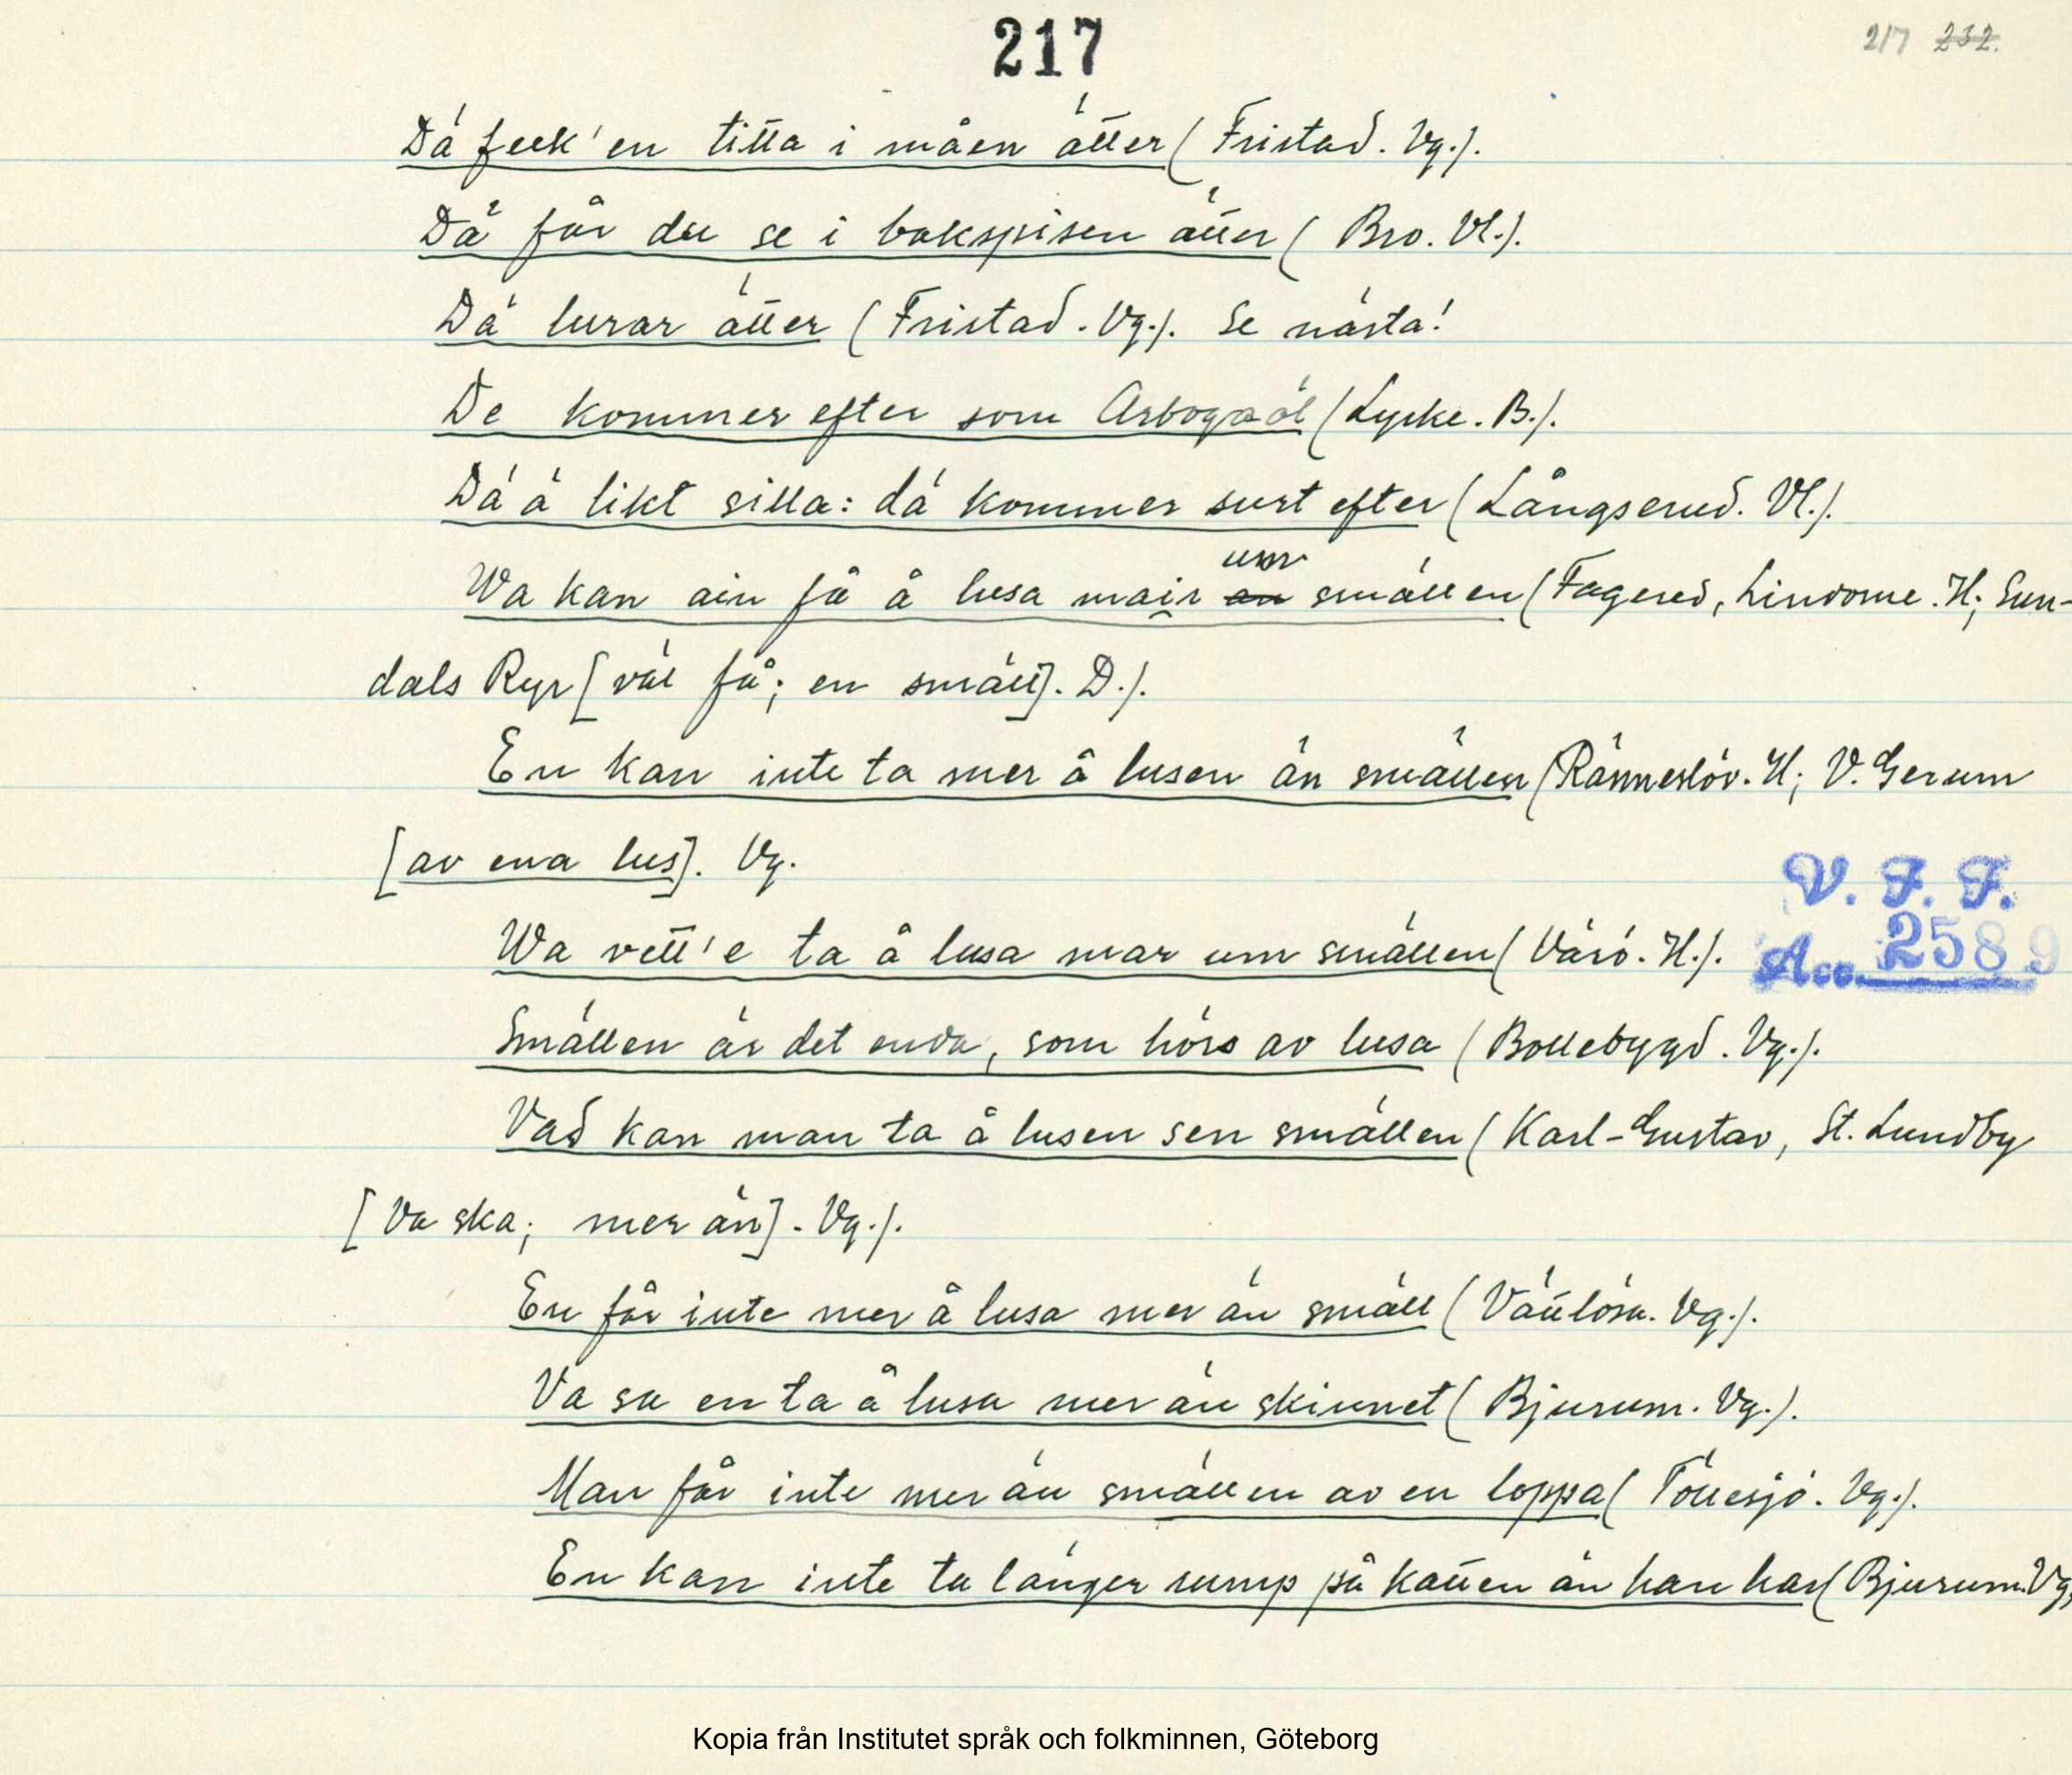 217
217 232.
Dä feck'en titta i måen ätter (Fristad. Vg.).
Dä får du se i bakspisen ätter (Bro. Vl.).
Dä lurar ätter (Fristad. Vg.). Se nästa!
De kommer efter som Arbogaöl (Lycke. B.).
Dä ä likt silla: dä kommer surt efter (Långserud. Vl.).
um
Wa kan ain få å lusa mair än smällen (Fagered, Lindome. H; Sun-
dals Ryr [väl få; en smäll]. D.).
En kan inte ta mer å lusen än smällen (Ränneslöv. H; V. Gerum
[av ena lus]. Vg.
V. F. F.
Wa vett'e ta å lusa mar um smällen (Värö. H.).
Acc. 2589
Smällen är det enda, som hörs av lusa (Bollebygd. Vg.).
Vad kan man ta å lusen sen smällen (Karl-Gustav, St. Lundby
[Va ska; mer än]. Vg.).
En får inte mer å lusa mer än smäll (Vättlösa. Vg.).
Va sa en ta å lusa mer än skinnet (Bjurum. Vg.).
Man får inte mer än smällen av en loppa (Töllesjö. Vg.).
En kan inte ta länger rump på katten än han har (Bjurum. Vg;
Kopia från Institutet språk och folkminnen, Göteborg